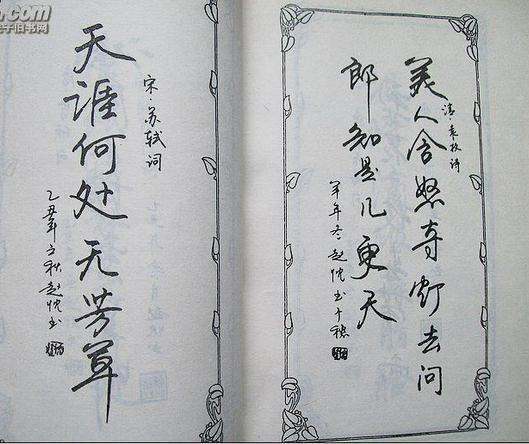 .com
子旧书网
宋·苏轼词
天涯何处无芳草
乙丑年立秋赵忱书
清·袁枚诗
美人含怒夺灯去问
郎知是几更天
羊年冬赵忱书于穗